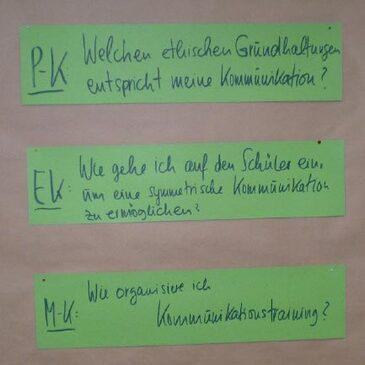 P-K: Welchen ethischen Grundhaltungen
entspricht meine Kommunikation?
EK: Wie gehe ich auf den Schüler ein,
um eine symmetrische Kommunikation
zu ermöglichen?
M-K: Wie organisiere ich
Kommunikationstraining?